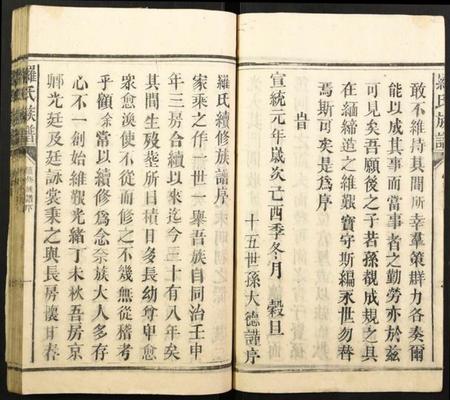 羅氏族譜
敢不維持其間所幸羣策群力各奏爾
能以成其事而當事者之勤勞亦於兹
可見矣吾願後之子若孫覩成規之具
在緬締造之維艱寶守斯編永世勿替
焉斯可矣是爲序
旹
宣統元年歲次己酉季冬月 榖旦
十五世孫大德謹序
羅氏續修族譜序
家乘之作一世一舉吾族自同治壬申
年三房合續以來迄今三十有八年矣
其間生殁塟所日積日多長幼尊卑愈
衆愈渙使不從而修之不幾無從稽考
乎顧余當以續修爲念奈族大人多存
心不一創始維艱光緒丁未秋吾房京
卿光廷及廷詠裳秉之與長房懷甘春
羅氏族譜